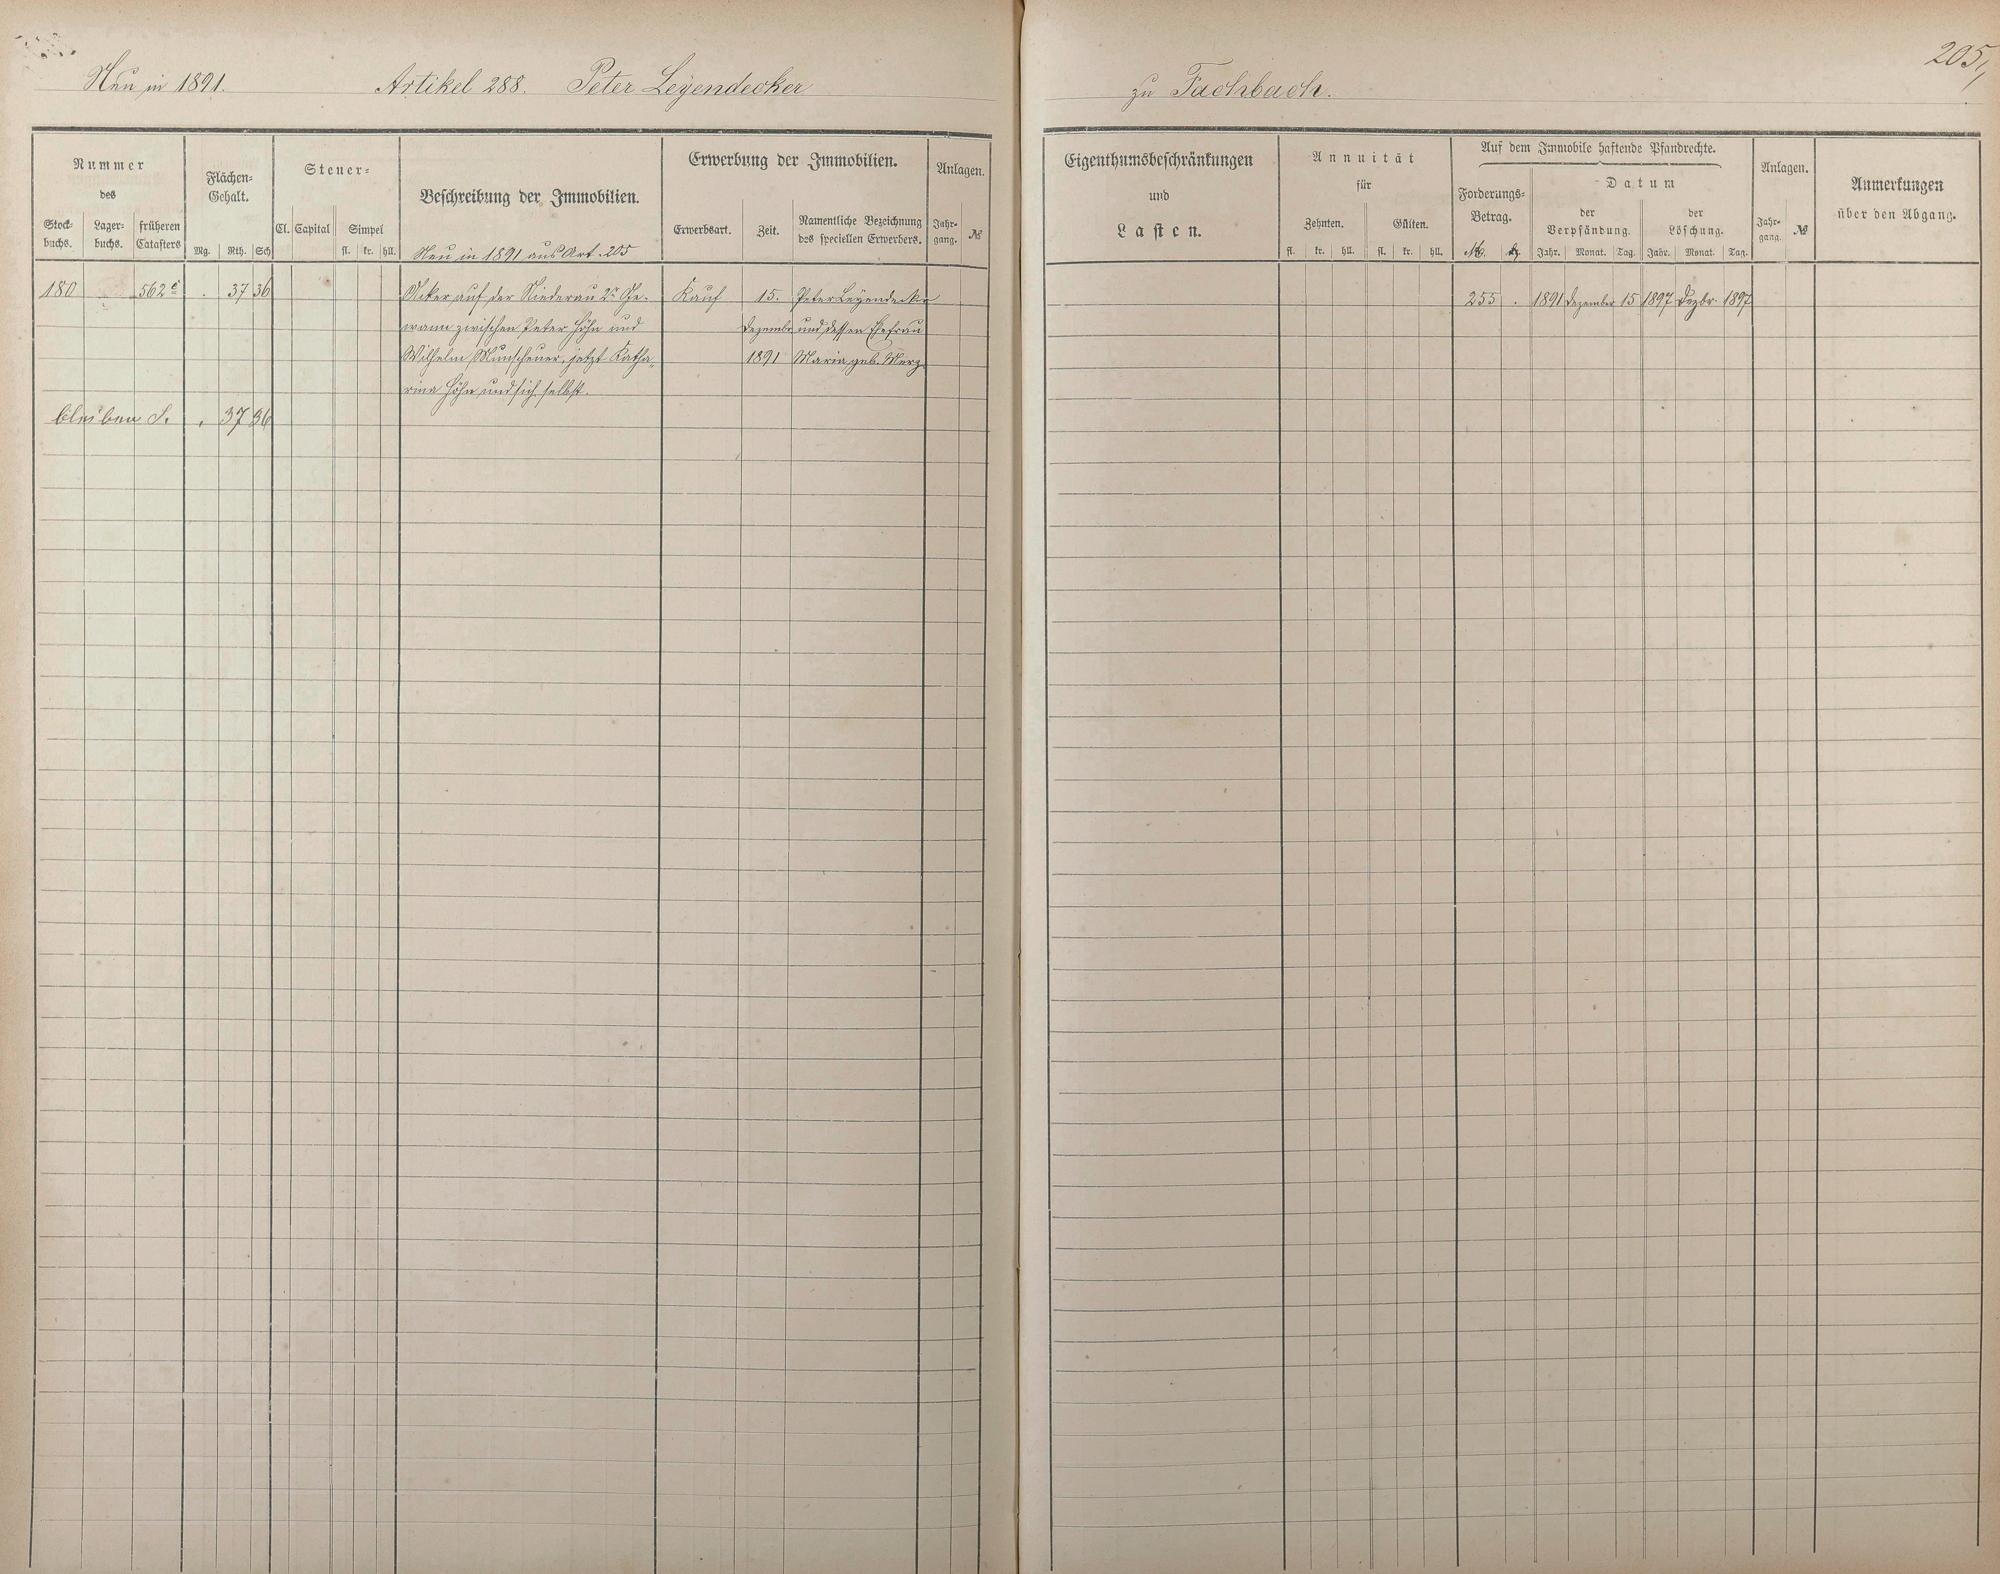 205,
Neu in 1891. Artikel 288. Peter Leÿendecker zu Fachbach.
Nummer
des
Stock-
buchs.
Lager-
buchs.
früheren
Catasters
Flächen-
Gehalt.
Mg. Rth. Sch
Steuer-
Cl. Capital
Simpel
fl. kr. hll.
Beschreibung der Immobilien.
Neu in 1891 aus Art. 205
Erwerbung der Immobilien.
Erwerbsart. Zeit.
Namentliche Bezeichnung
des speciellen Erwerbers.
Anlagen.
Jahr-
gang.
№
Eigenthumsbeschränkungen
und
Lasten.
Annuität
für
Zehnten. Gülten.
fl. kr. hll. fl. kr. hll.
Auf dem Immobile haftende Pfandrechte.
Forderungs-
Betrag.
Datum
der
Verpfändung.
der
Löschung.
Jahr. Monat. Tag. Jahr. Monat. Tag.
Anlagen.
Jahr-
gang.
№
Anmerkungen
über den Abgang.
180 562 c . 37 36 Acker auf der Niederau 2r Ge- Kauf 15. Peter Leÿendecker 255 . 1891 Dezember 15 1897 Dezbr. 1897
wann zwischen Peter Höhn und Dezembr und dessen Ehefrau
Wilhelm Munscheuer, jetzt Katha- 1891 Maria geb. Merz
rina Höhn und sich selbst.
bleiben S. . 37 36